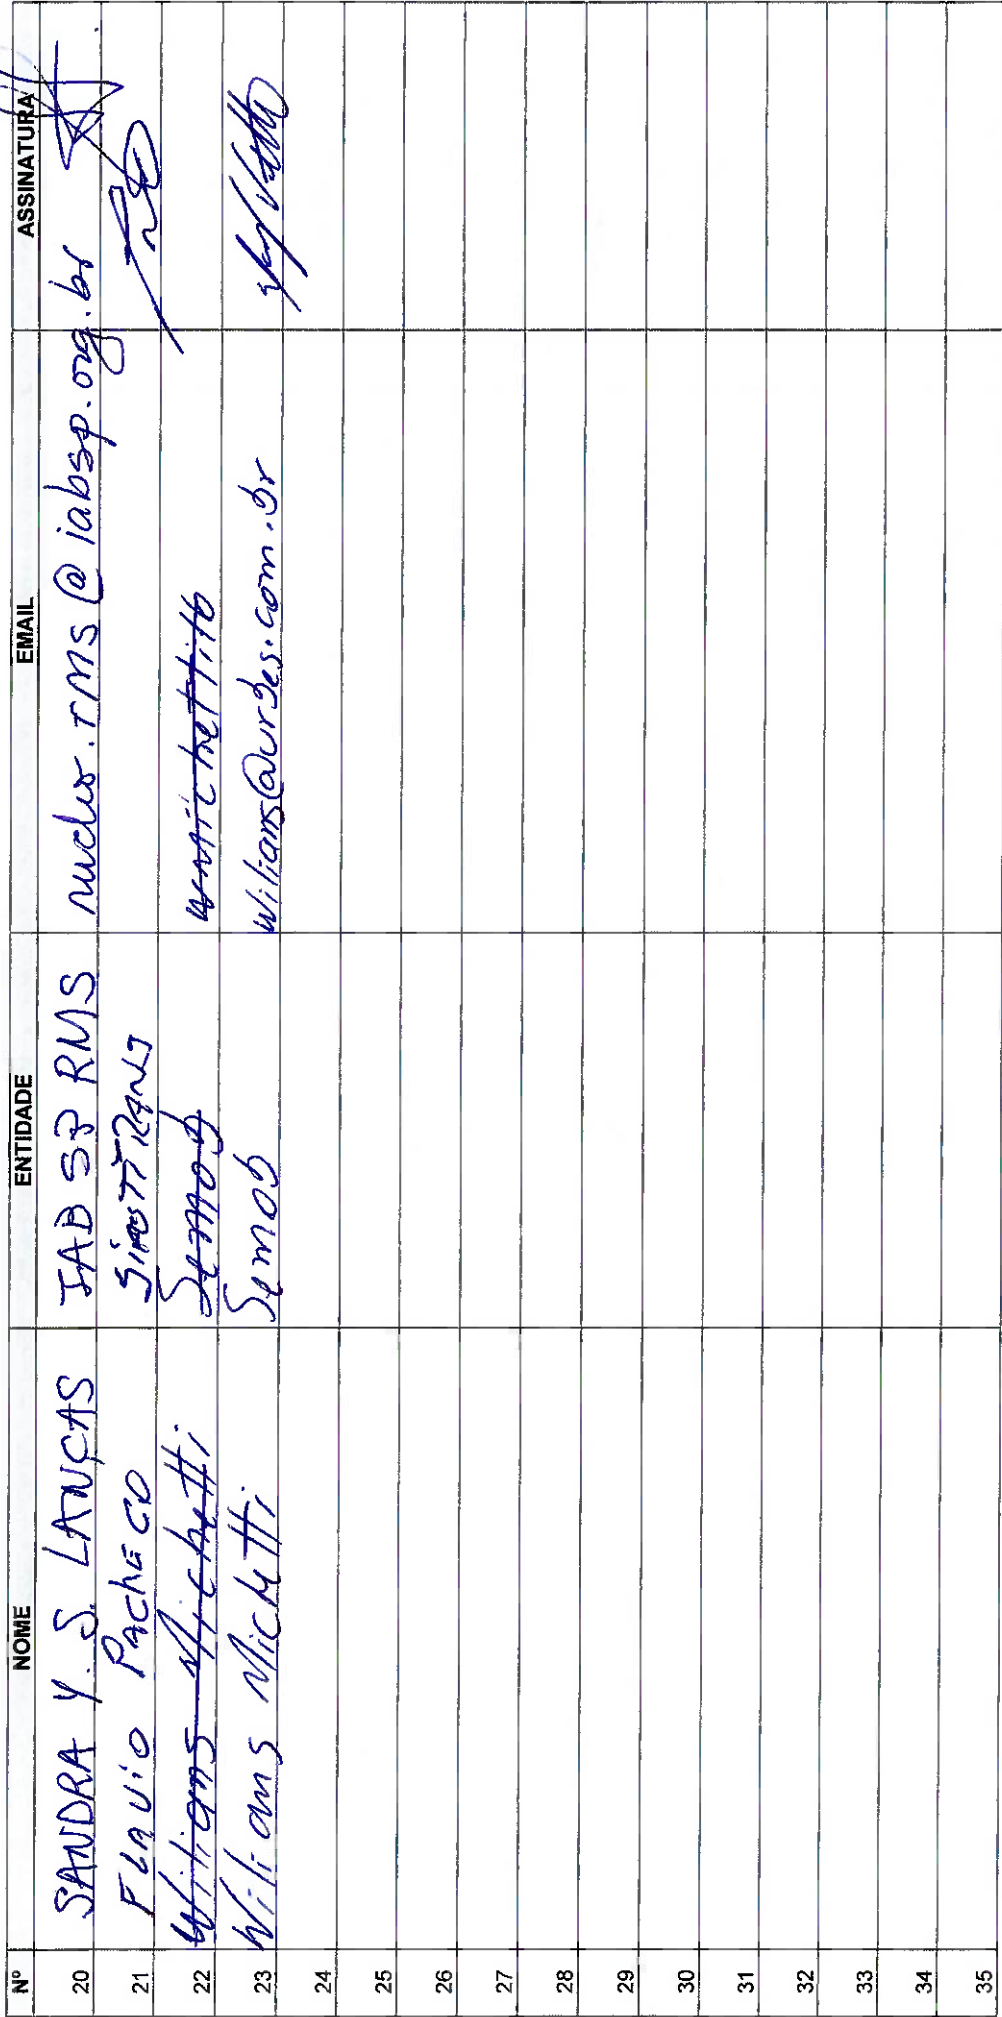 Nº NOME ENTIDADE EMAIL ASSINATURA
20 SANDRA Y. S. LANÇAS IAB SP RMS nucleo.rms@iabsp.org.br
21 FLAViO PAchECO
22 Wilians Michetti Semob
23 Wilians Michetti Semob wilians@urbes.com.br
24
25
26
27
28
29
30
31
32
33
34
35